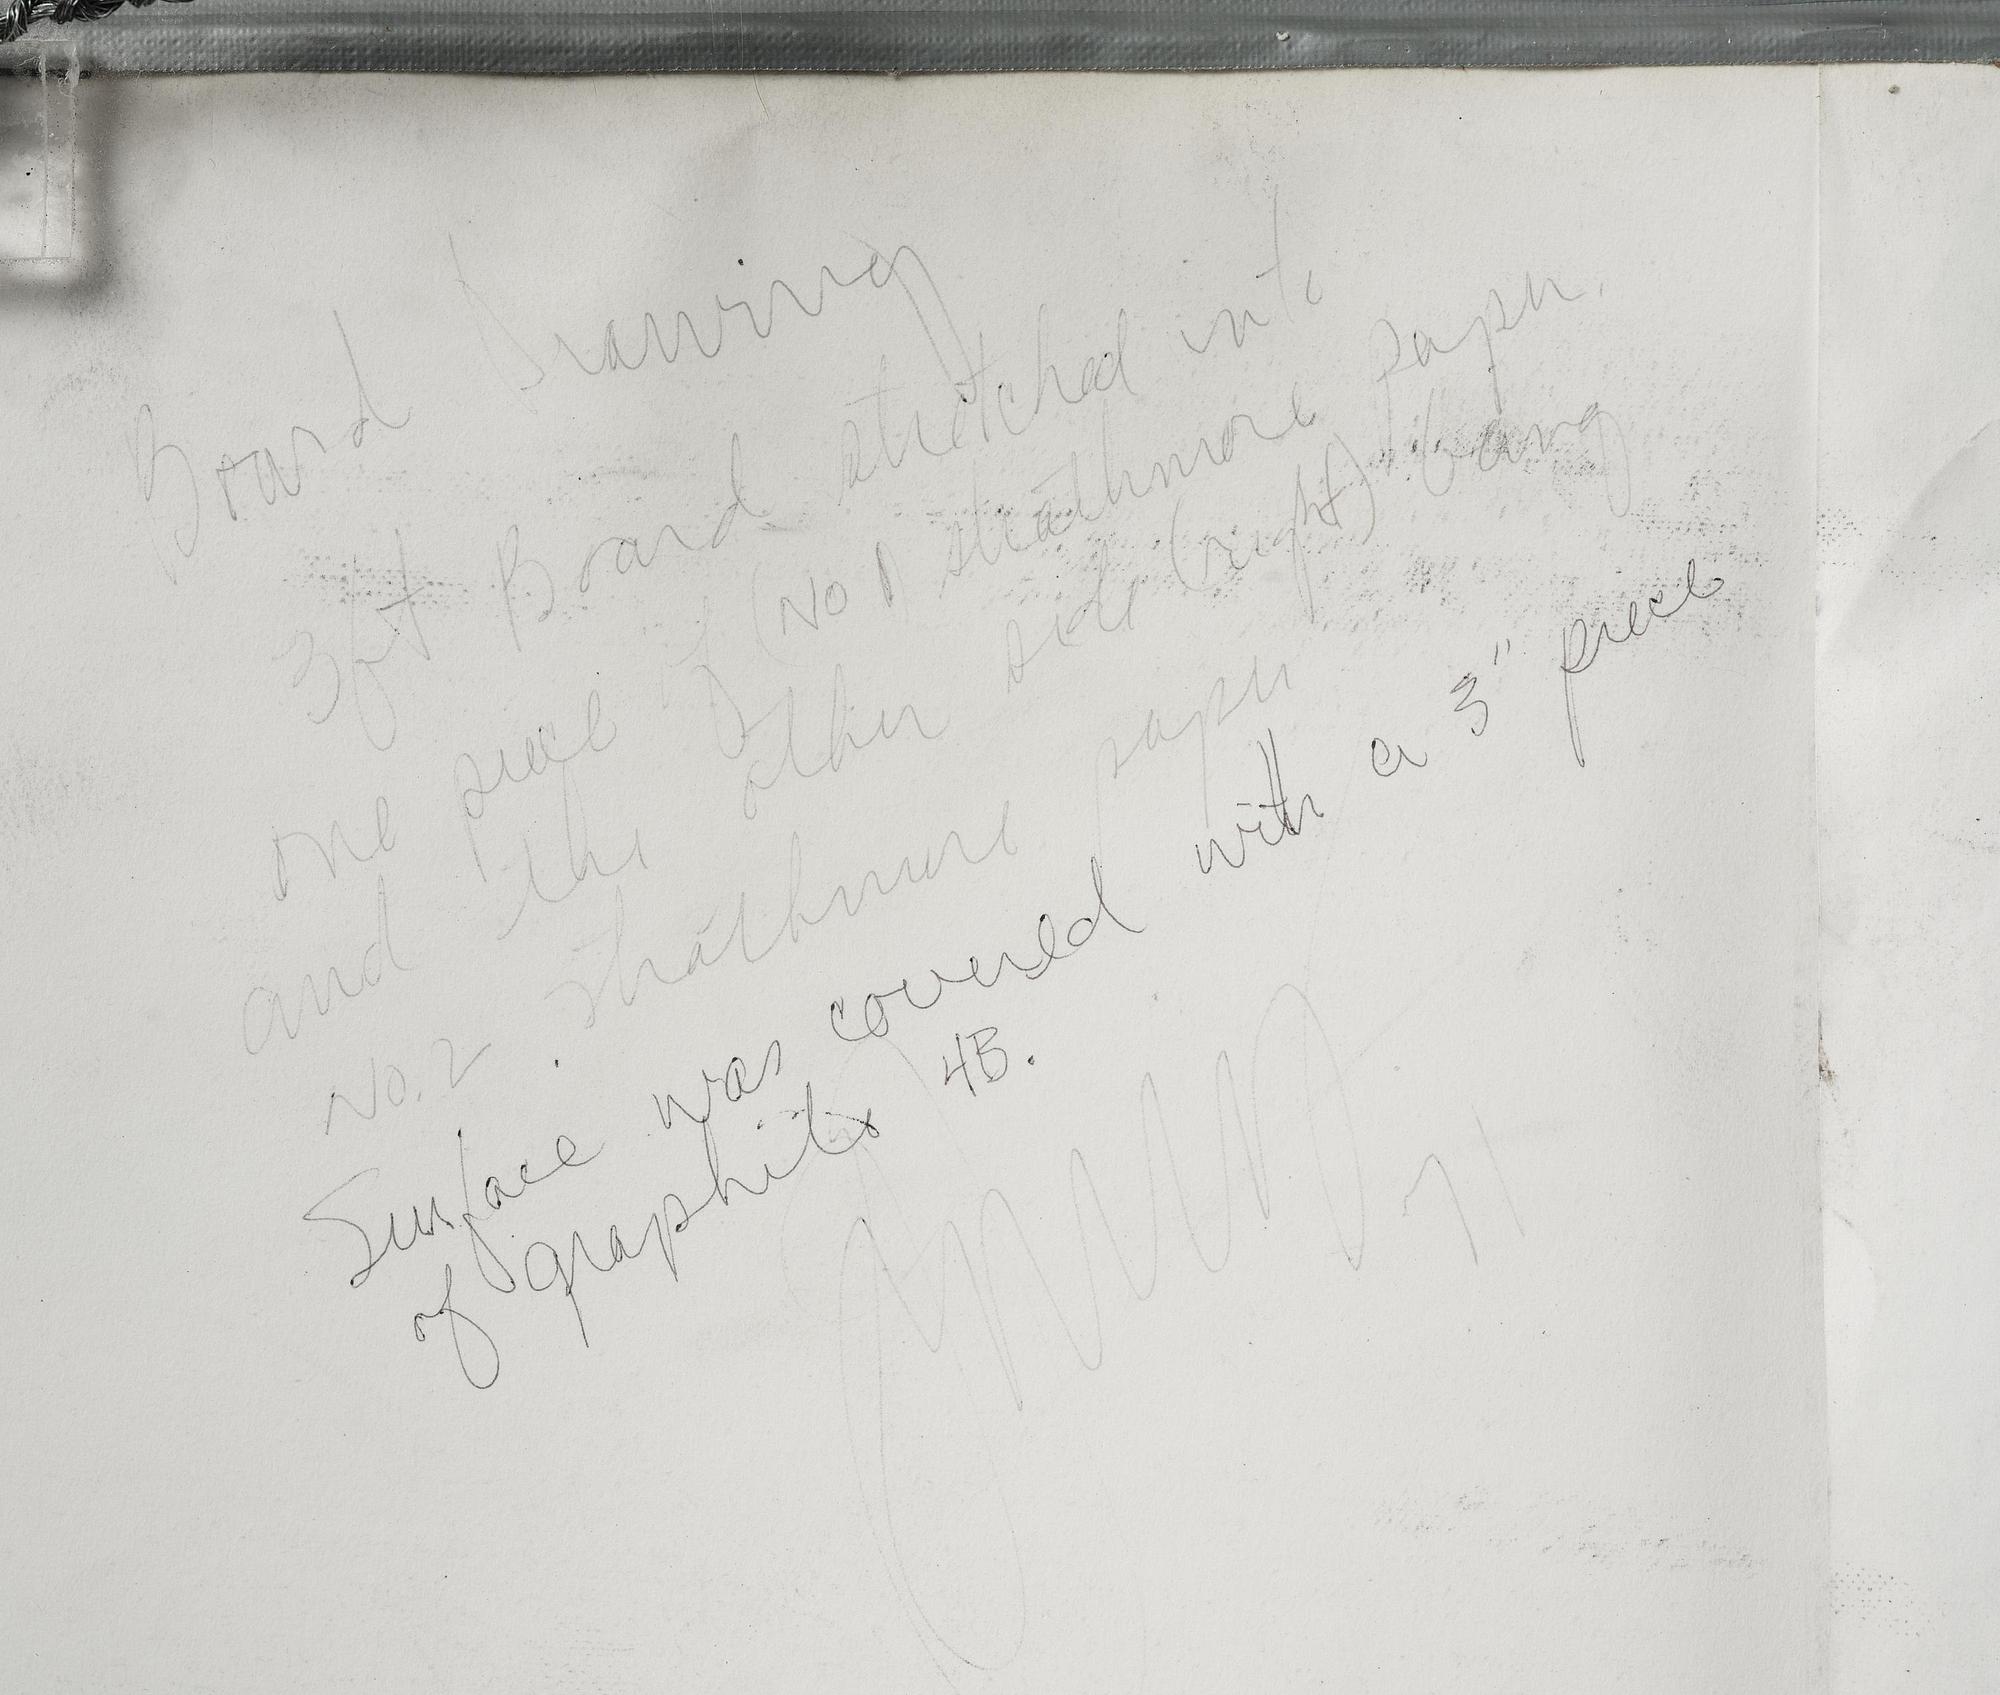 Board Drawing
3ft Board stretched into
one piece of (No 1) strathmore paper.
and the other side (right) being
No. 2 strathmore paper
Surface was covered with a 3" piece
of graphite 4B.
71